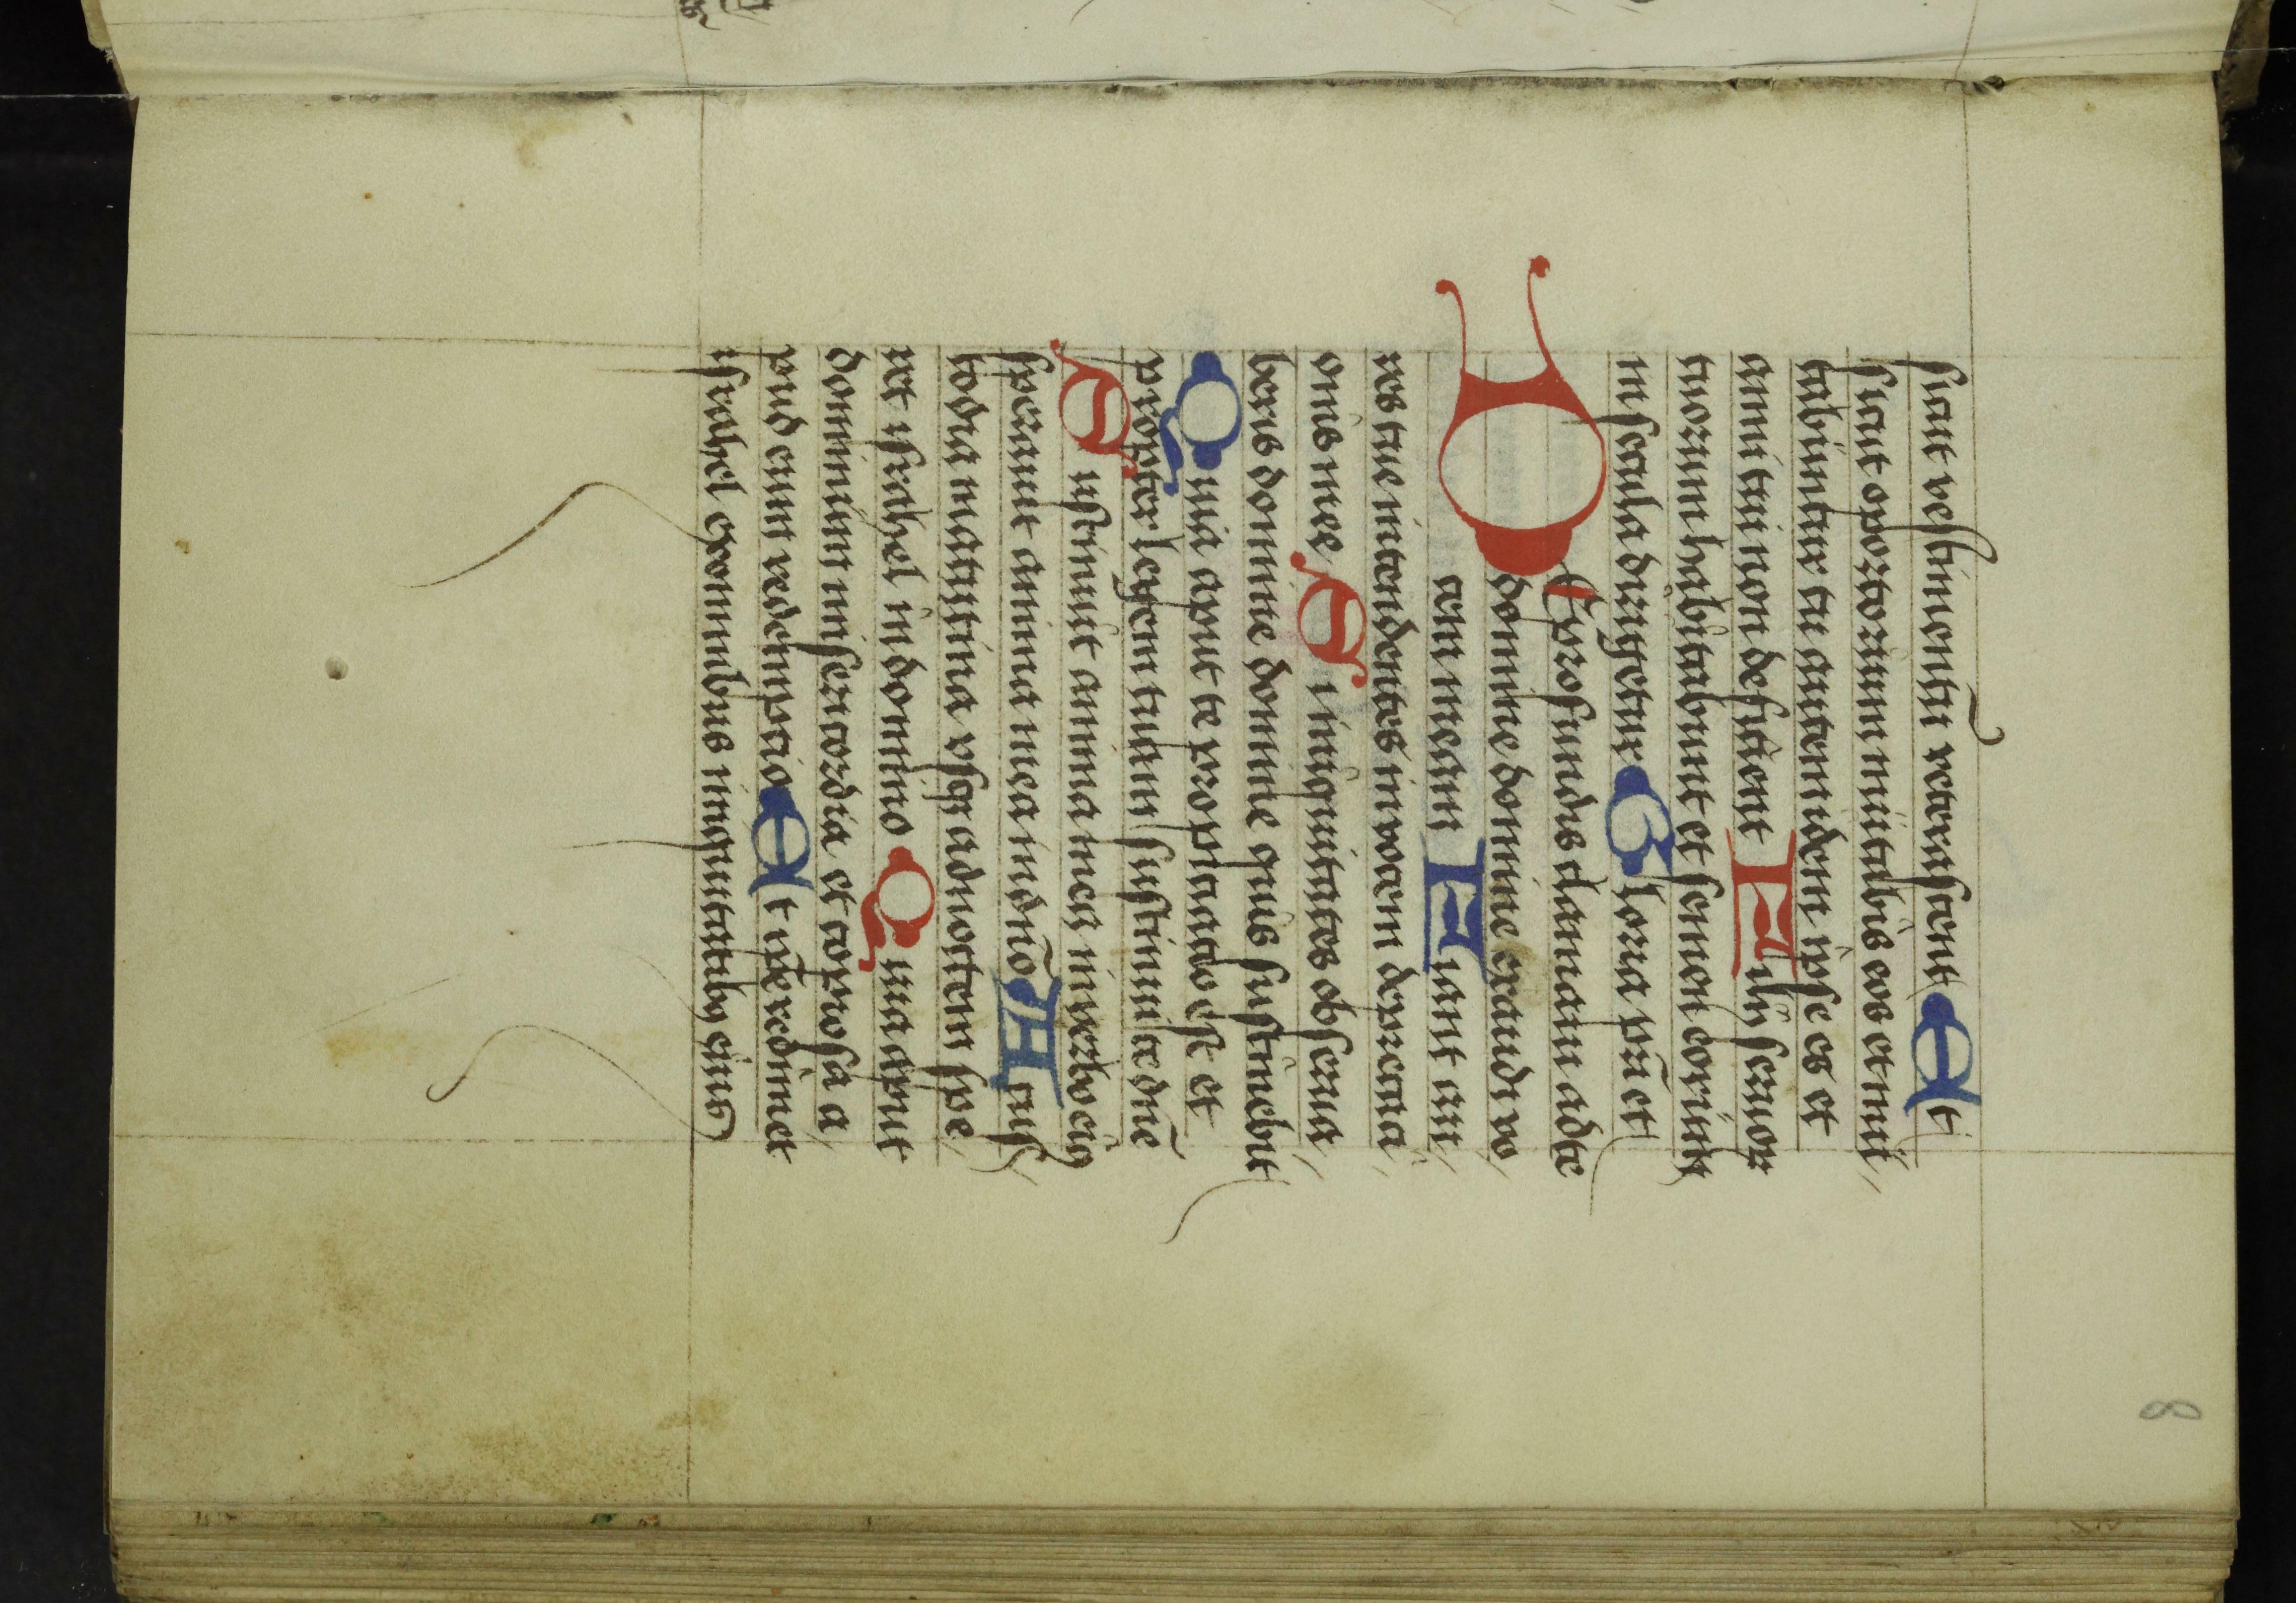 sicut vestimentū veterascent Et
sicut opertorium mutabis eos et mu
tabuntur tu autem idem ipse es et
anni tui non deficient Filij seruorꝝ
tuorum habitabunt et semen eorum
in secula dirigetur Gloria pr̄i et
De profundis clamaui ad te
domine domine exaudi vo
cem meam Fiant au
res tue intendentes in vocem deprecati
onis mee Si iniquitates obserua
beris domine domine quis sustinebit
Quia aput te propitiatio est et
propter legem tuam sustinui te dn̄e
Sustinuit anima mea in verbo eiꝰ
sperauit anima mea in dn̄o A cus
todia matutina vsqꝫ ad noctem spe
ret israhel in domino Quia aput
dominum misericordia et copiosa a
pud eum redemptio Et ip̄e redimet
israhel ex omnibus iniquitatibꝫ eius
8